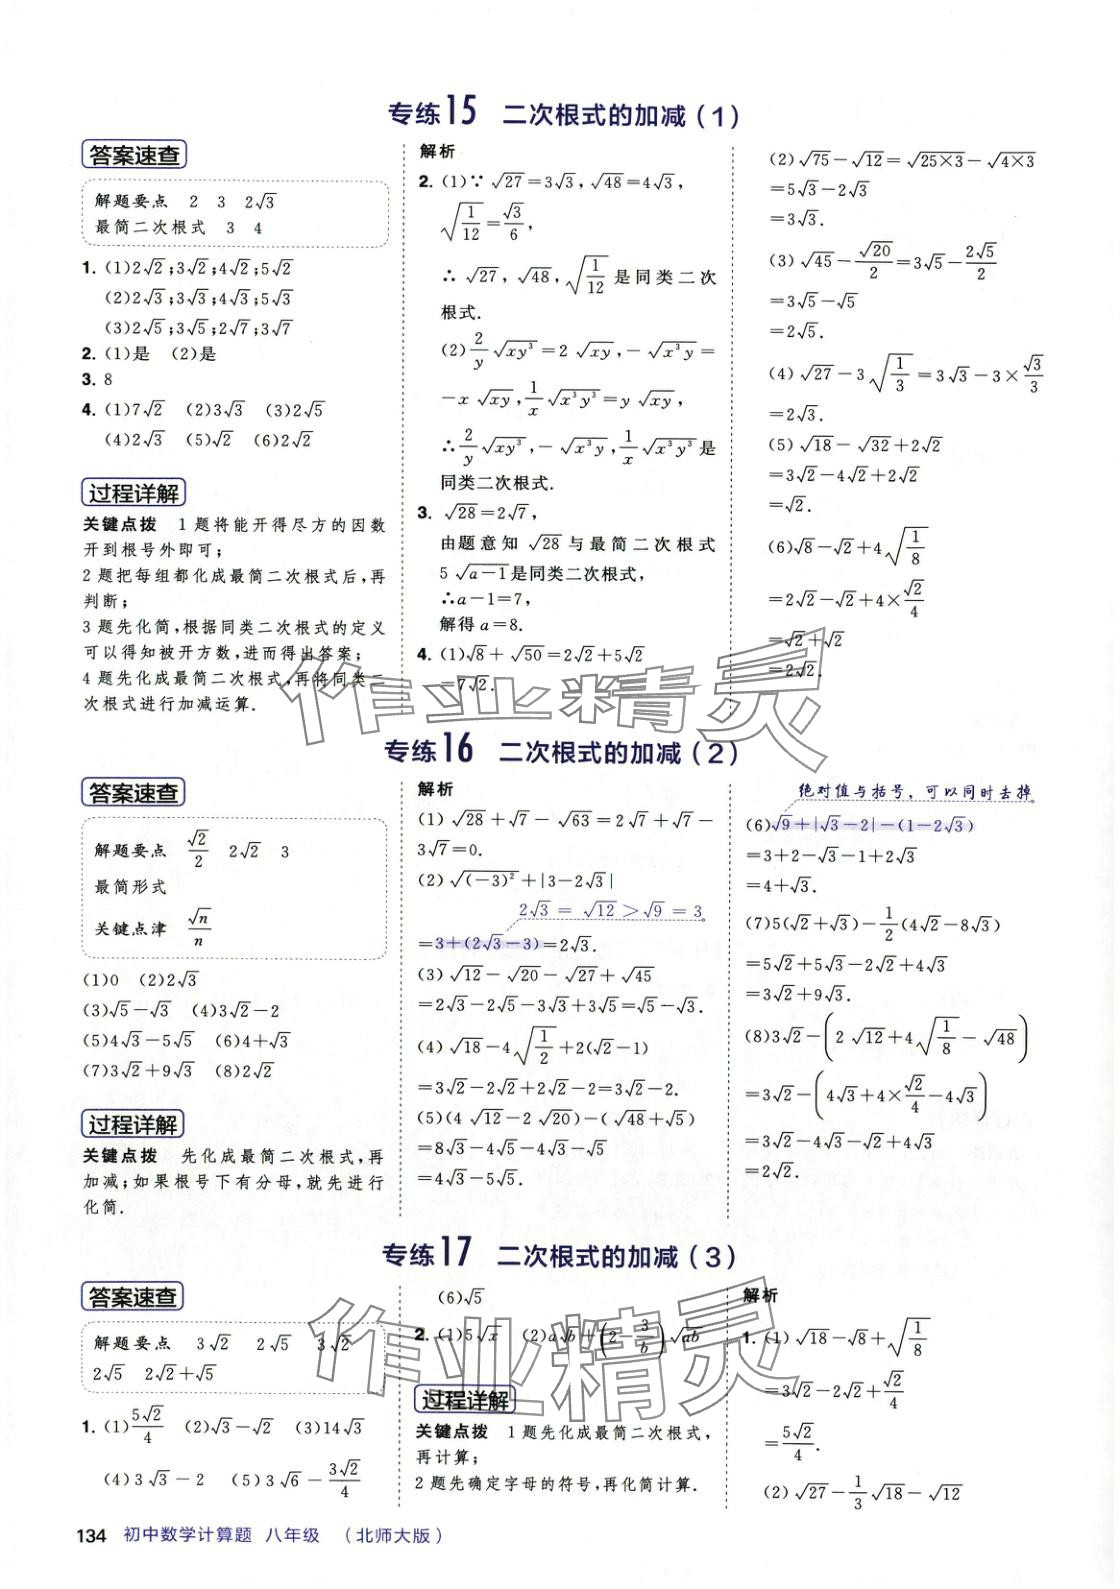 专练15 二次根式的加减(1)
答案速查
解题要点 2 3 2√3
最简二次根式 3 4
1. (1)2√2;3√2;4√2;5√2
(2)2√3;3√3;4√3;5√3
(3)2√5;3√5;2√7;3√7
2. (1)是 (2)是
3. 8
4. (1)7√2 (2)3√3 (3)2√5
(4)2√3 (5)√2 (6)2√2
过程详解
关键点拨 1题将能开得尽方的因数
开到根号外即可;
2题把每组都化成最简二次根式后,再
判断;
3题先化简,根据同类二次根式的定义
可以得知被开方数,进而得出答案;
4题先化成最简二次根式,再将同类二
次根式进行加减运算.
解析
2. (1)∵ √27=3√3,√48=4√3,
√(1/12)=√3/6,
∴ √27,√48,√(1/12)是同类二次
根式.
(2)2/y √(xy³)=2√(xy),-√(x³y)=
-x√(xy),1/x √(x³y³)=y√(xy),
∴2/y √(xy³),-√(x³y),1/x √(x³y³)是
同类二次根式.
3. √28=2√7,
由题意知√28与最简二次根式
5√(a-1)是同类二次根式,
∴a-1=7,
解得a=8.
4. (1)√8+√50=2√2+5√2
=7√2.
(2)√75-√12=√(25×3)-√(4×3)
=5√3-2√3
=3√3.
(3)√45-√20/2=3√5-2√5/2
=3√5-√5
=2√5.
(4)√27-3√(1/3)=3√3-3×√3/3
=2√3.
(5)√18-√32+2√2
=3√2-4√2+2√2
=√2.
(6)√8-√2+4√(1/8)
=2√2-√2+4×√2/4
=√2+√2
=2√2.
作业精灵
专练16 二次根式的加减(2)
答案速查
解题要点 √2/2 2√2 3
最简形式
关键点津 √n/n
(1)0 (2)2√3
(3)√5-√3 (4)3√2-2
(5)4√3-5√5 (6)4+√3
(7)3√2+9√3 (8)2√2
过程详解
关键点拨 先化成最简二次根式,再
加减;如果根号下有分母,就先进行
化简.
解析
(1)√28+√7-√63=2√7+√7-
3√7=0.
(2)√(-3)²+|3-2√3|
2√3=√12>√9=3
=3+(2√3-3)=2√3.
(3)√12-√20-√27+√45
=2√3-2√5-3√3+3√5=√5-√3.
(4)√18-4√(1/2)+2(√2-1)
=3√2-2√2+2√2-2=3√2-2.
(5)(4√12-2√20)-(√48+√5)
=8√3-4√5-4√3-√5
=4√3-5√5.
绝对值与括号,可以同时去掉
(6)√9+|√3-2|-(1-2√3)
=3+2-√3-1+2√3
=4+√3.
(7)5(√2+√3)-1/2(4√2-8√3)
=5√2+5√3-2√2+4√3
=3√2+9√3.
(8)3√2-(2√12+4√(1/8)-√48)
=3√2-(4√3+4×√2/4-4√3)
=3√2-4√3-√2+4√3
=2√2.
专练17 二次根式的加减(3)
答案速查
解题要点 3√2 2√5 3√2
2√5 2√2+√5
1. (1)5√2/4 (2)√3-√2 (3)14√3
(4)3√3-2 (5)3√6-3√2/4
(6)√5
2. (1)5√x (2)a√b+(2-3/b)√ab
过程详解
关键点拨 1题先化成最简二次根式,
再计算;
2题先确定字母的符号,再化简计算.
解析
1. (1)√18-√8+√(1/8)
=3√2-2√2+√2/4
=5√2/4.
(2)√27-1/3√18-√12
作业精灵
134 初中数学计算题 八年级 (北师大版)